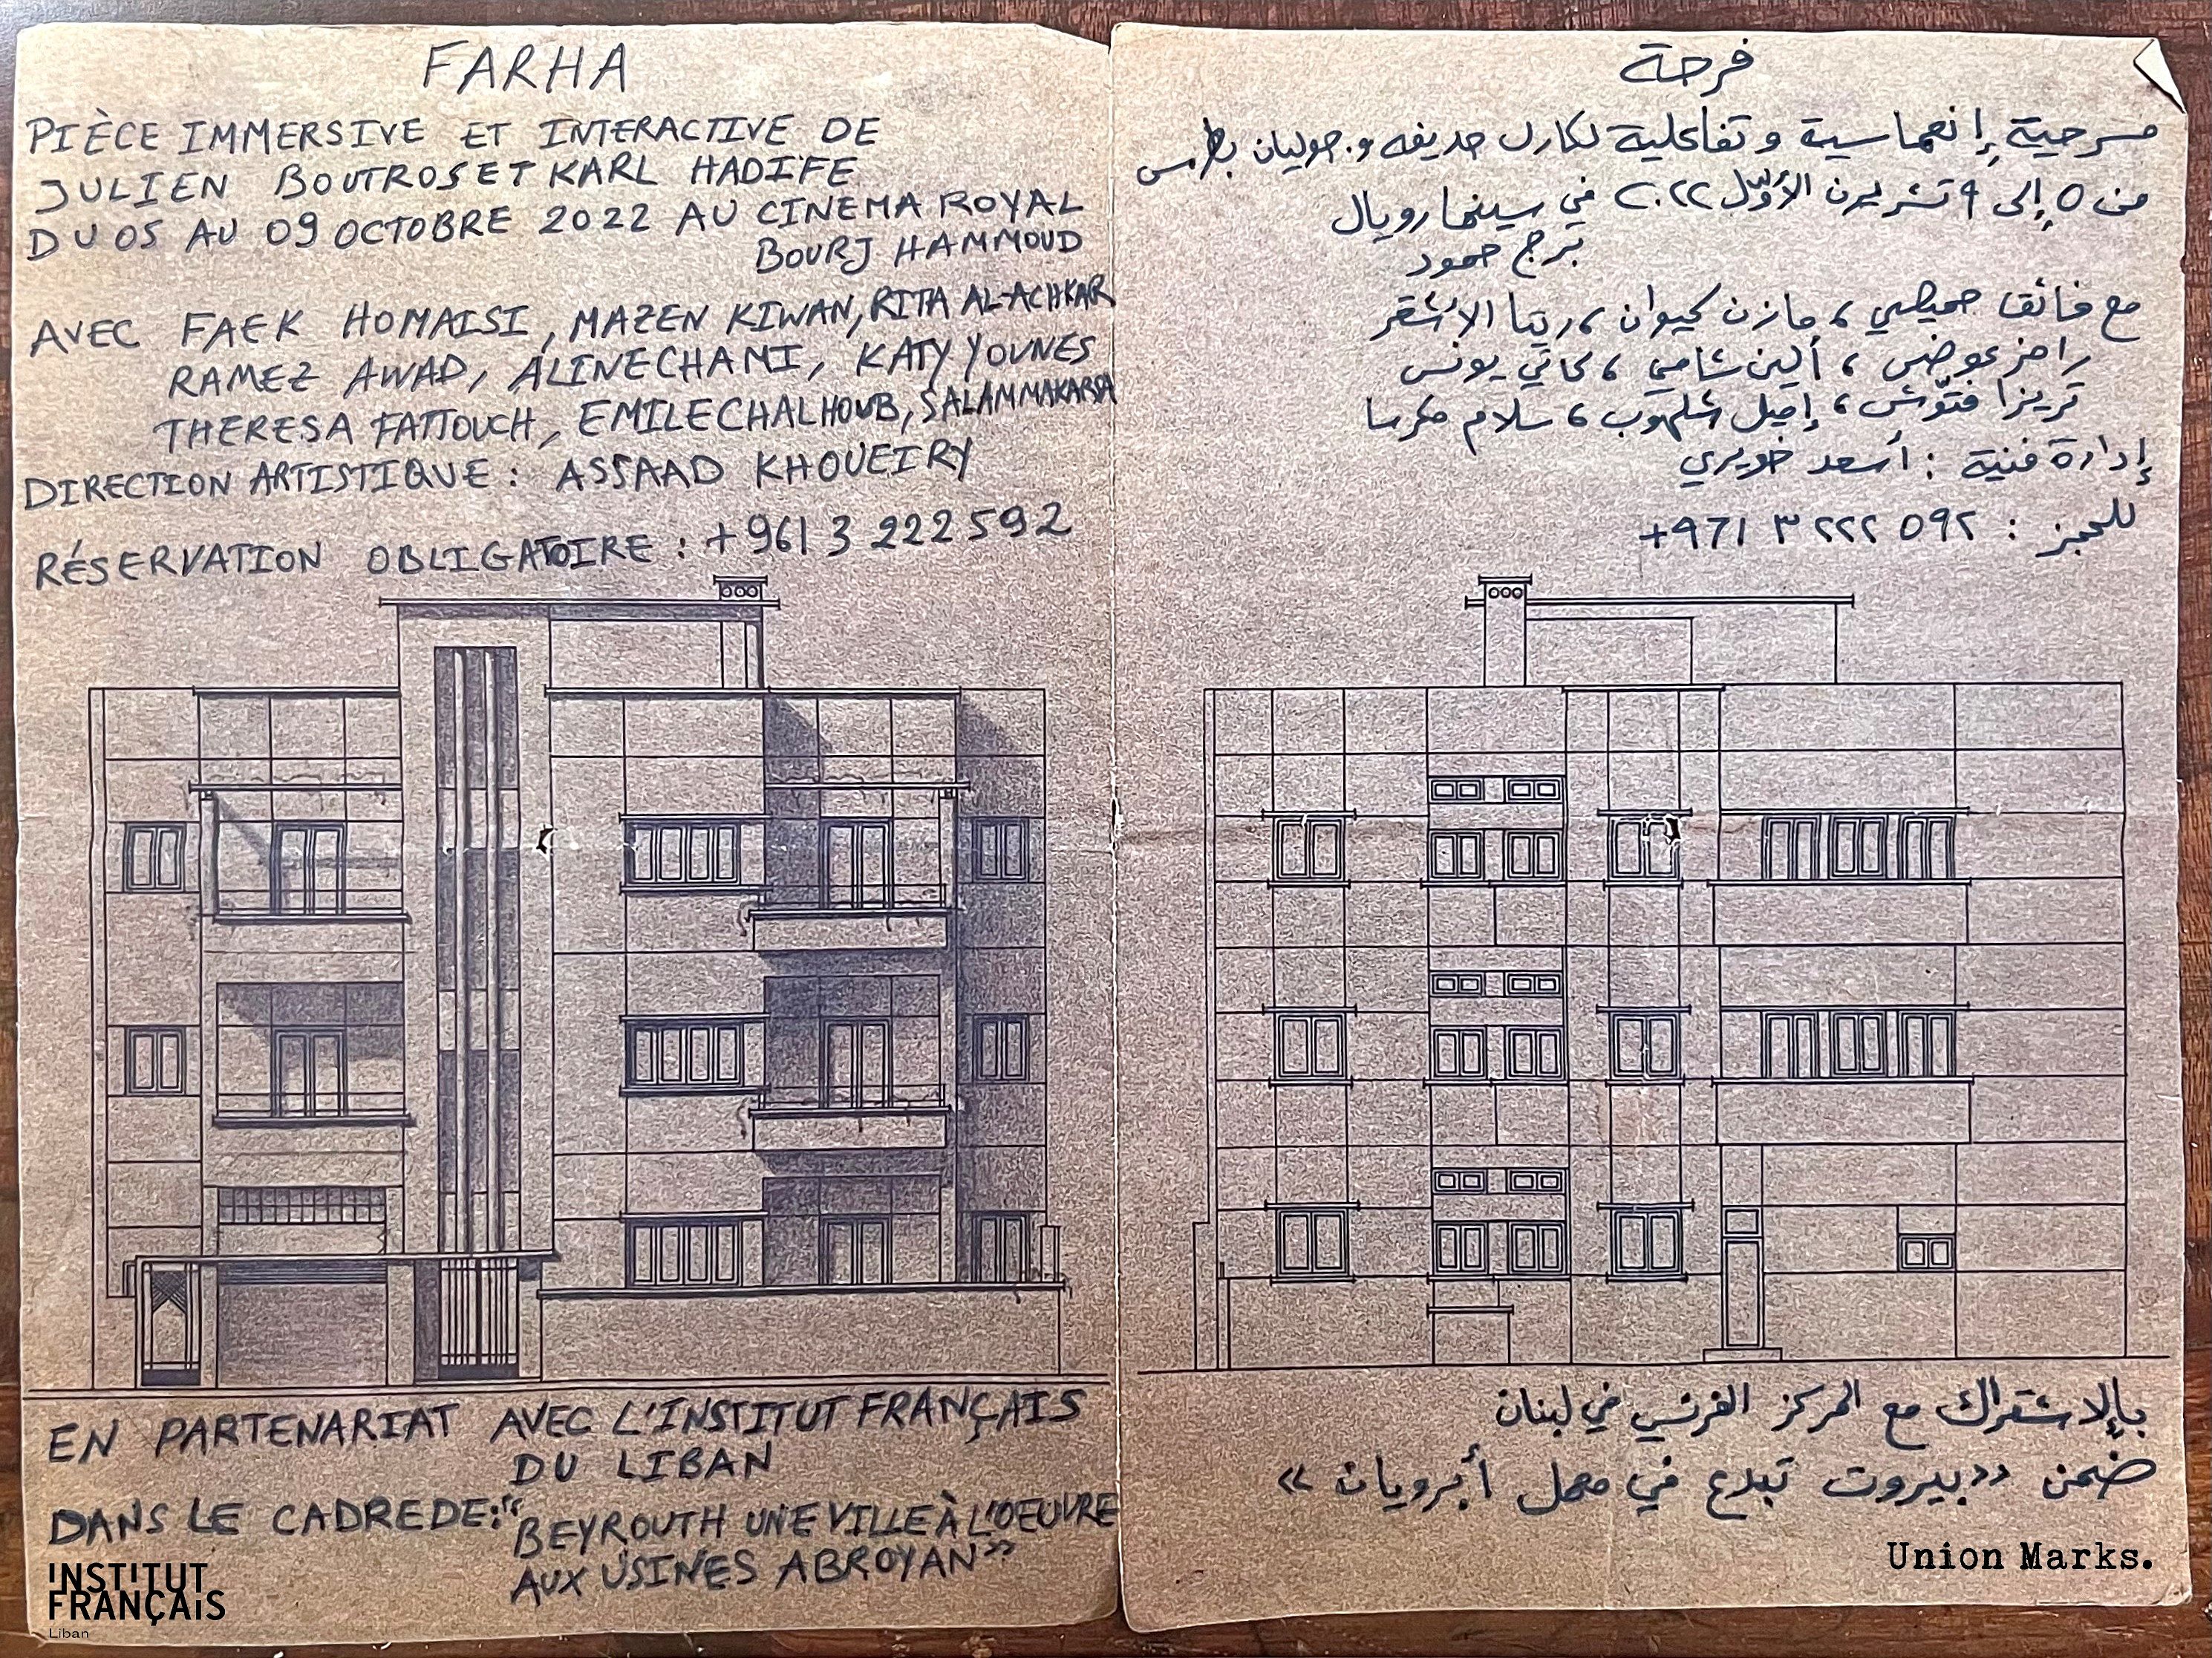 FARHA
PIÈCE IMMERSIVE ET INTERACTIVE DE
JULIEN BOUTROS ET KARL HADIFE
DU 05 AU 09 OCTOBRE 2022 AU CINEMA ROYAL
BOURJ HAMMOUD
AVEC FAEK HOMAISI, MAZEN KIWAN, RITA AL-ACHKAR
RAMEZ AWAD, ALINE CHAMI, KATY YOUNES
THERESA FATTOUCH, EMILE CHALHOUB, SALAM MAKARSA
DIRECTION ARTISTIQUE : ASSAAD KHOUEIRY
RÉSERVATION OBLIGATOIRE : +961 3 222 592
EN PARTENARIAT AVEC L'INSTITUT FRANÇAIS
DU LIBAN
DANS LE CADRE DE: "BEYROUTH UNE VILLE À L'OEUVRE
AUX USINES ABROYAN"
INSTITUT
FRANÇAIS
Liban
فرحة
مسرحية إنغماسية وتفاعلية لكارل حديفه و جوليان بطرس
من ٥ إلى ٩ تشرين الأوّل ٢٠٢٢ في سينما رويال
برج حمود
مع فائق حميصي، مازن كيوان، ريتا الاشقر
رامز عوض، ألين شامي، كاتي يونس
تريزا فتّوش، إميل شلهوب، سلام مكرسا
إدارة فنية : أسعد خويري
للحجز : +٩٦١ ٣ ٢٢٢ ٥٩٢
بالإشتراك مع المركز الفرنسي في لبنان
ضمن «بيروت تبدع في معمل أبرويان»
Union Marks.